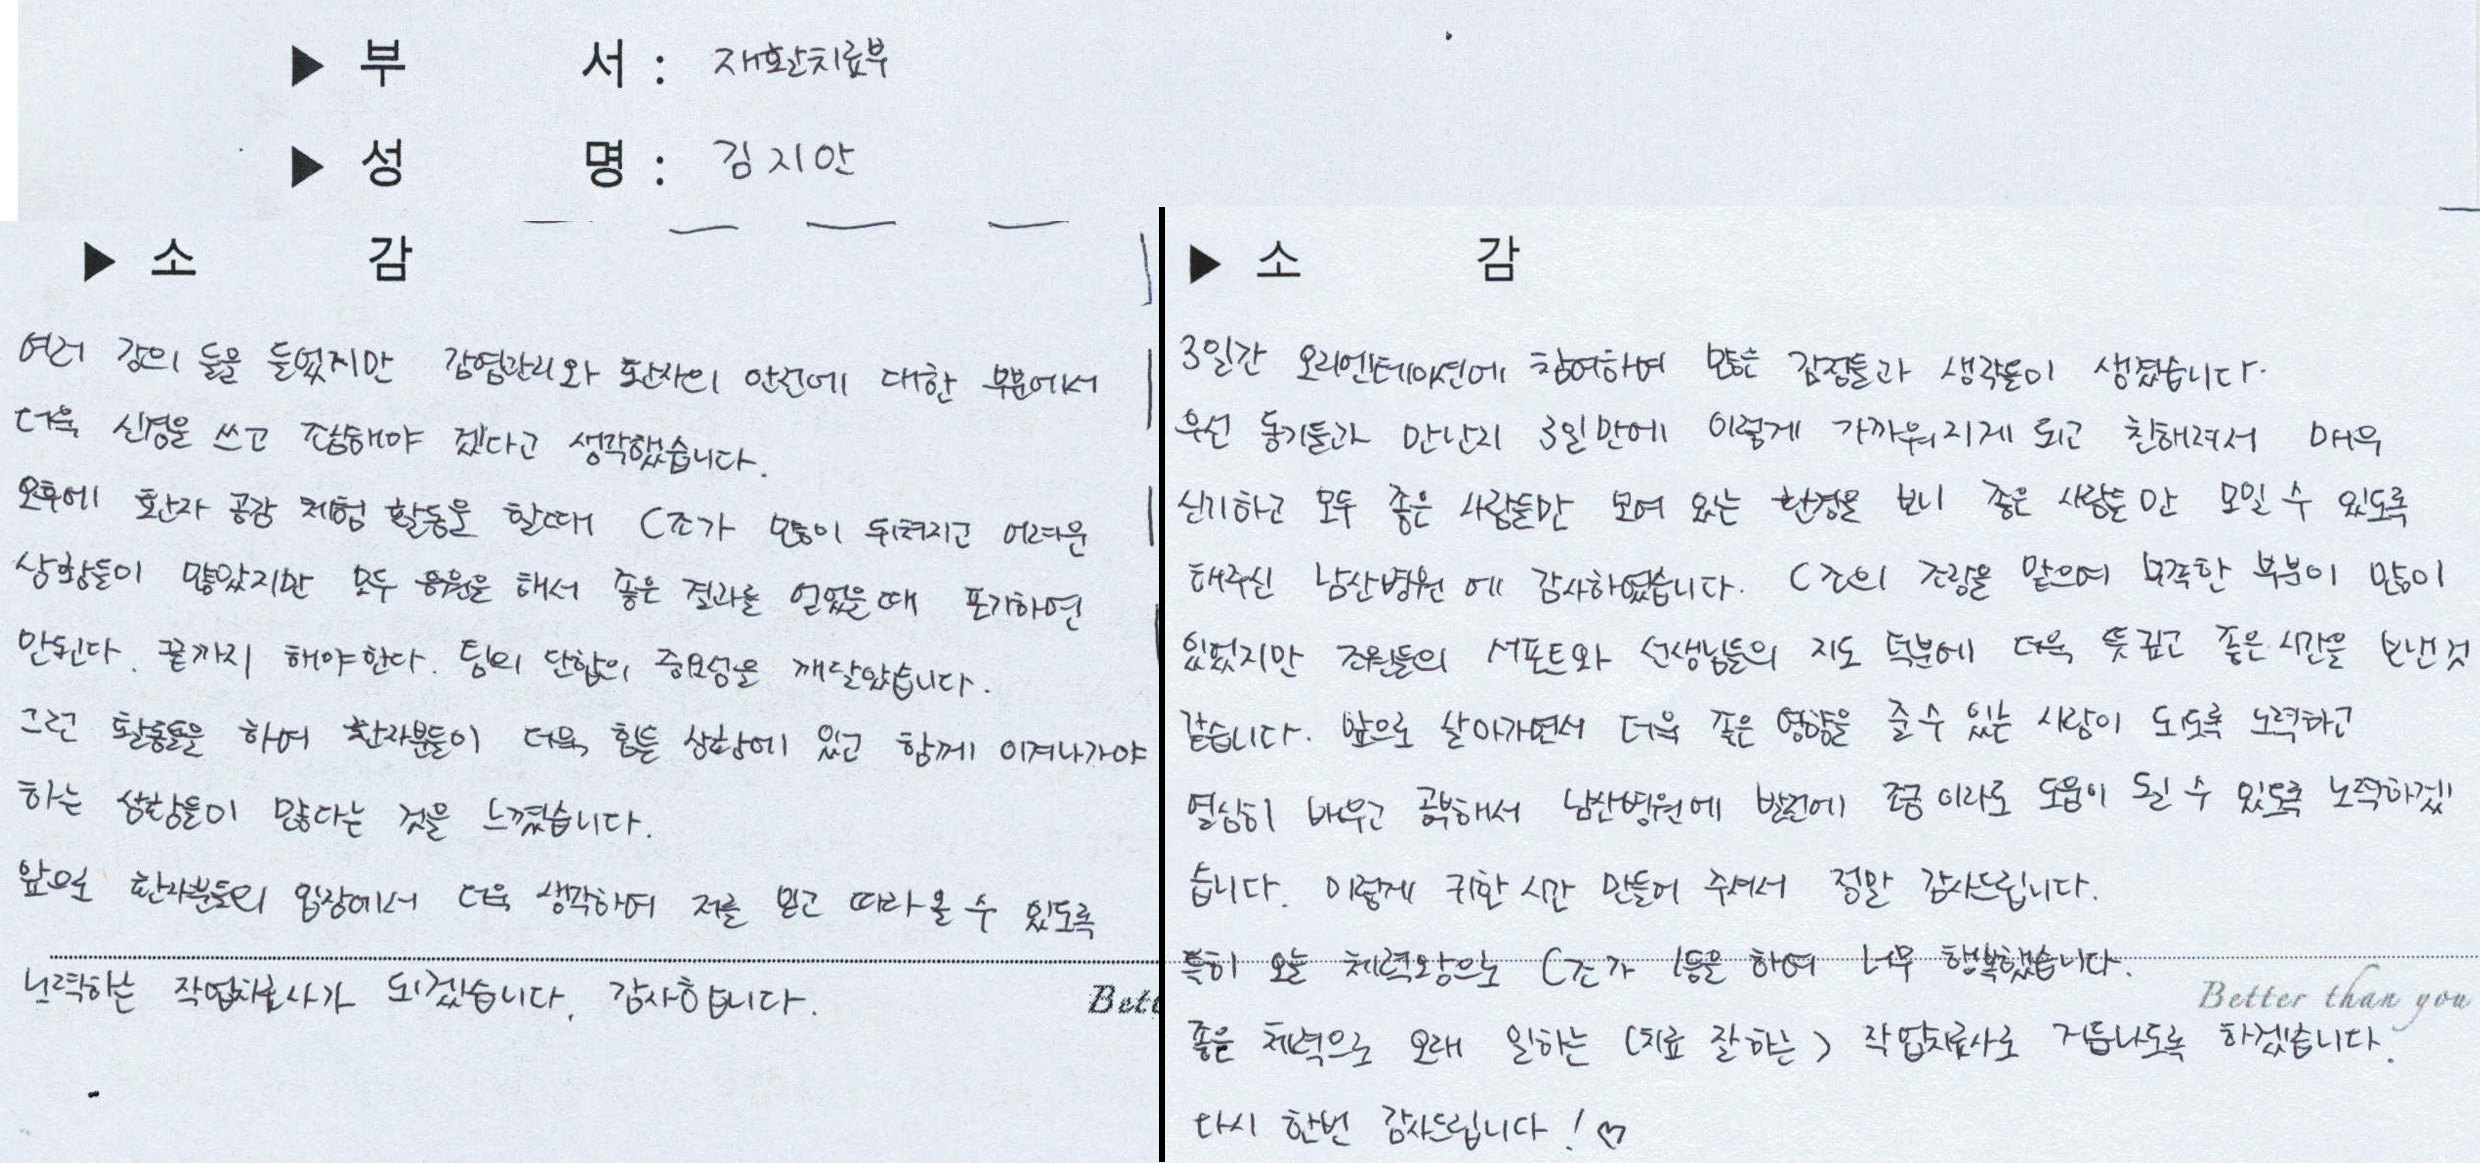 ▶ 부 서 : 재활치료부
▶ 성 명 : 김지안
▶ 소 감
여러 강의 들을 들었지만 감염관리와 환자의 안전에 대한 부분에서
더욱 신경을 쓰고 조심해야 겠다고 생각했습니다.
오후에 환자 공감 체험 활동을 할때 C조가 많이 뒤쳐지고 어려운
상황들이 많았지만 모두 응원을 해서 좋은 결과를 얻었을때 포기하면
안된다. 끝까지 해야한다. 팀의 단합의 중요성을 깨달았습니다.
그런 활동들을 하며 환자분들이 더욱 힘든 상황에 있고 함께 이겨나가야
하는 상황들이 많다는 것을 느꼈습니다.
앞으로 환자분들의 입장에서 더욱 생각하며 저를 믿고 따라올 수 있도록
노력하는 작업치료사가 되겠습니다. 감사합니다.
Bett
▶ 소 감
3일간 오리엔테이션에 참여하며 많은 감정들과 생각들이 생겼습니다.
우선 동기들과 만난지 3일만에 이렇게 가까워지게 되고 친해져서 매우
신기하고 모두 좋은 사람들만 모여 있는 환경을 보니 좋은 사람들만 모일 수 있도록
해주신 남산병원에 감사하였습니다. C조의 조장을 맡으며 부족한 부분이 많이
있었지만 조원들의 서포트와 선생님들의 지도 덕분에 더욱 뜻깊고 좋은 시간을 보낸것
같습니다. 앞으로 살아가면서 더욱 좋은 영향을 줄 수 있는 사람이 되도록 노력하고
열심히 배우고 공부해서 남산병원에 발전에 조금이라도 도움이 될 수 있도록 노력하겠
습니다. 이렇게 귀한 시간 만들어 주셔서 정말 감사드립니다.
특히 오늘 체력왕으로 C조가 1등을 하여 너무 행복했습니다.
Better than you
좋은 체력으로 오래 일하는 (치료 잘하는) 작업치료사로 거듭나도록 하겠습니다.
다시 한번 감사드립니다! ♡